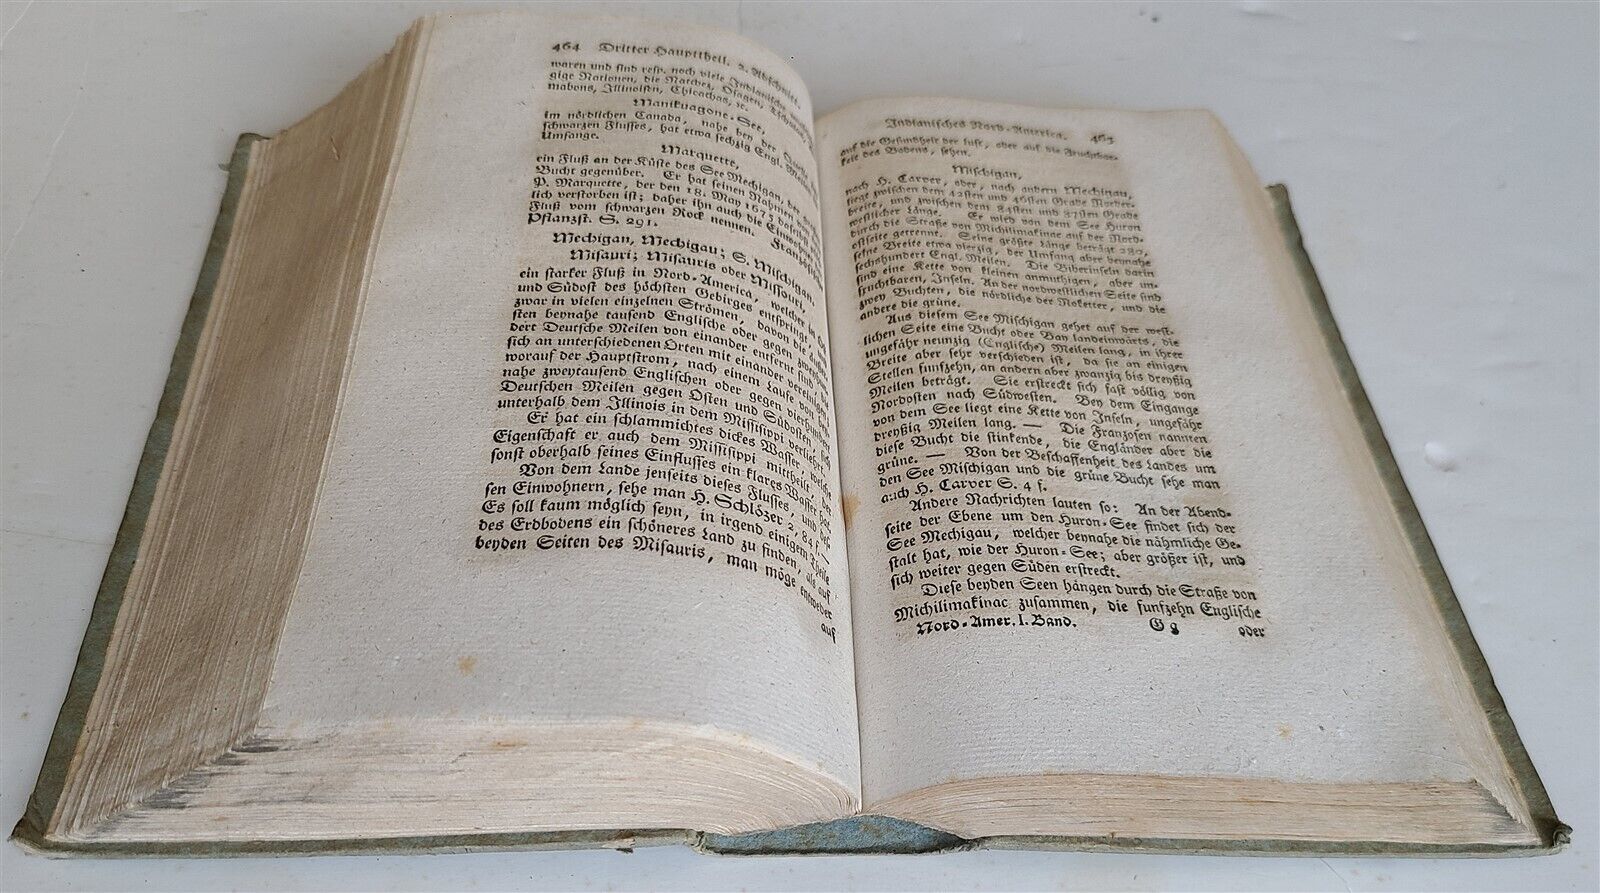 464 Dritter Haupttheil. 2. Abschnitt.
waren und sind resp. noch viele Indianische
gige Nationen, die Natchez, Osagen,
mahons, Illinoisen, Chicachas, ꝛc.
Manikuagone-See,
im nördlichen Canada, nahe bey der
schwarzen Flusses, hat etwa sechzig Engl. Meilen
Umfange.
Marquette,
ein Fluß an der Küste des See Mechigan, der
Bucht gegenüber. Er hat seinen Nahmen
P. Marquette, der den 18. May 1675 daselbst
lich verstorben ist; daher ihn auch die Einwohner
Fluß vom schwarzen Rock nennen. Französische
Pflanzst. S. 291.
Mechigan, Mechigau; S. Mischigan.
Misauri; Misauris oder Missouri,
ein starker Fluß in Nord-America, welcher in
und Südost des höchsten Gebirges entspringt, und
zwar in vielen einzelnen Strömen, davon die
sten beynahe tausend Englische oder gegen
dert Deutsche Meilen von einander entfernt sind,
sich an unterschiedenen Orten mit einander vereinigen;
worauf der Hauptstrom, nach einem Laufe von
nahe zweytausend Englischen oder gegen vierhundert
Deutschen Meilen gegen Osten und Südosten sich
unterhalb dem Illinois in dem Missisippi verliehrt.
Er hat ein schlammichtes dickes Wasser, welche
Eigenschaft er auch dem Missisippi mittheilt, der
sonst oberhalb seines Einflusses ein klares Wasser hat.
Von dem Lande jenseits dieses Flusses, und des-
sen Einwohnern, sehe man H. Schlözer 2, 84 f. —
Es soll kaum möglich seyn, in irgend einigem Theile
des Erdbodens ein schöneres Land zu finden, als auf
beyden Seiten des Misauris, man möge entweder
auf
Indianisches Nord-America. 465
auf die Gesundheit der Luft, oder auf die Fruchtbar-
keit des Bodens, sehen.
Mischigan,
nach H. Carver, oder, nach andern Mechigau,
liege zwischen dem 42sten und 46sten Grade Norder-
breite, und zwischen dem 84sten und 87sten Grade
westlicher Länge. Er wird von dem See Huron
durch die Straße von Michilimakinac auf der Nord-
ostseite getrennt. Seine größte Länge beträgt 280,
seine Breite etwa vierzig, der Umfang aber beynahe
sechshundert Engl. Meilen. Die Biberinseln darin
sind eine Kette von kleinen anmuthigen, aber un-
fruchtbaren, Inseln. An der nordwestlichen Seite sind
zwey Buchten, die nördliche der Noketter, und die
andere die grüne.
Aus diesem See Mischigan gehet auf der west-
lichen Seite eine Bucht oder Bay landeinwärts, die
ungefähr neunzig (Englische) Meilen lang, in ihrer
Breite aber sehr verschieden ist, da sie an einigen
Stellen funfzehn, an andern aber zwanzig bis dreyßig
Meilen beträgt. Sie erstreckt sich fast völlig von
Nordosten nach Südwesten. Bey dem Eingange
von dem See liegt eine Kette von Inseln, ungefähr
dreyßig Meilen lang. — Die Franzosen nannten
diese Bucht die stinkende, die Engländer aber die
grüne. — Von der Beschaffenheit des Landes um
den See Mischigan und die grüne Bucht sehe man
auch H. Carver S. 4 f.
Andere Nachrichten lauten so: An der Abend-
seite der Ebene um den Huron-See findet sich der
See Mechigau, welcher beynahe die nähmliche Ge-
stalt hat, wie der Huron-See; aber größer ist, und
sich weiter gegen Süden erstreckt.
Diese beyden Seen hängen durch die Straße von
Michilimakinac zusammen, die funfzehn Englische
Nord-Amer. I. Band. G g oder